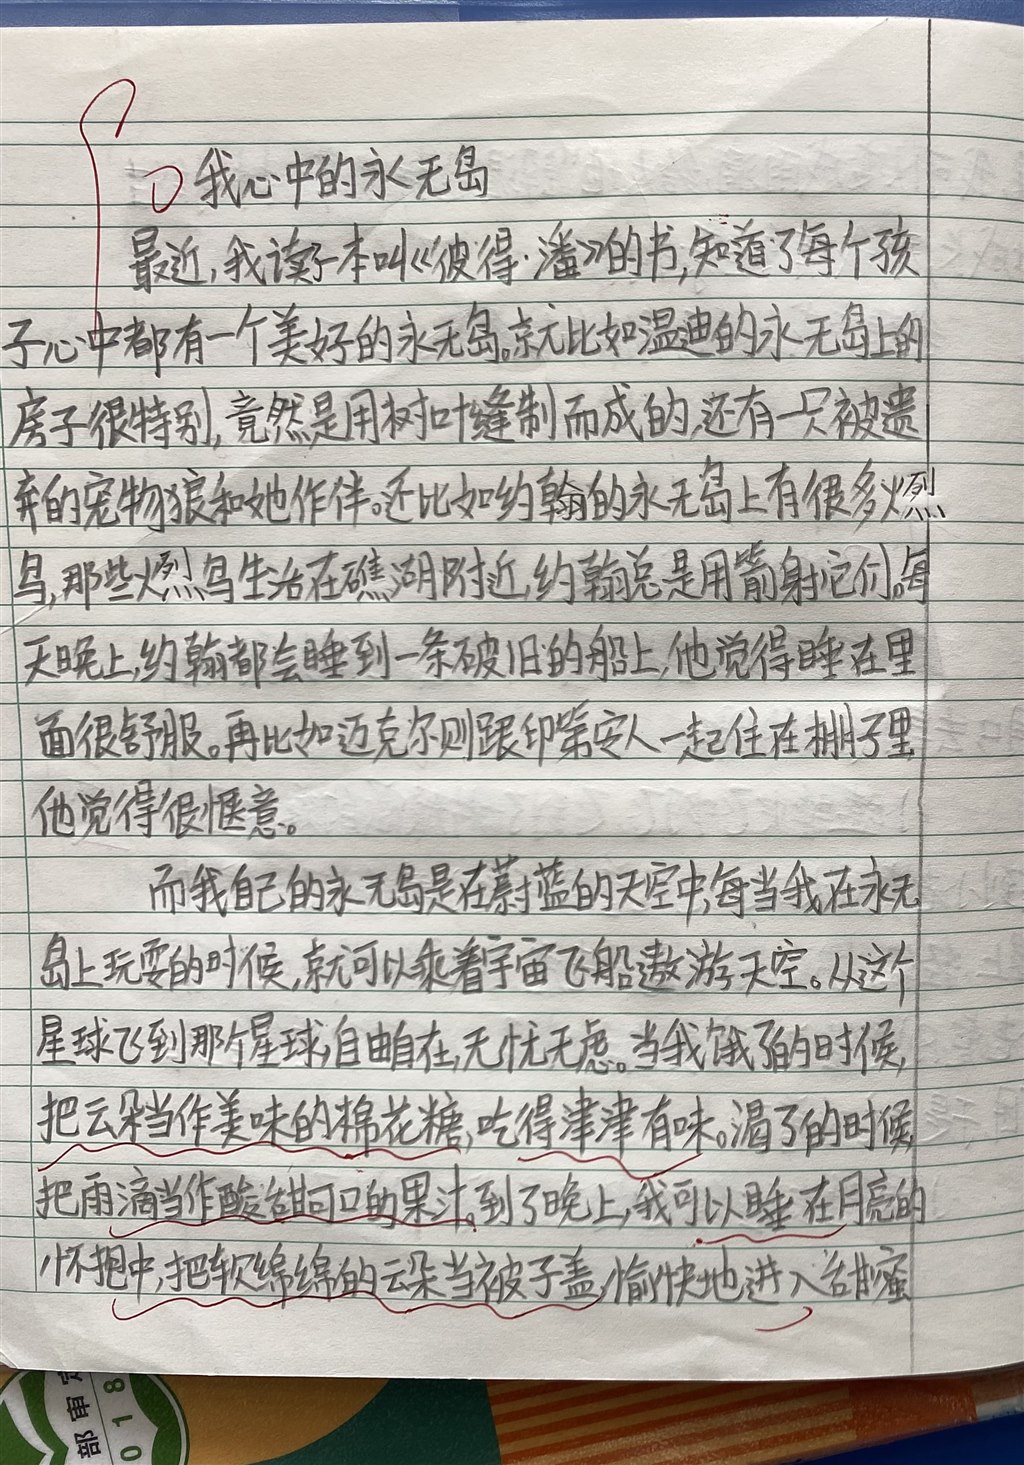 我心中的永无岛
最近，我读了一本叫《彼得·潘》的书，知道了每个孩
子心中都有一个美好的永无岛。就比如温迪的永无岛上的
房子很特别，竟然是用树叶缝制而成的，还有一只被遗
弃的宠物狼和她作伴。还比如约翰的永无岛上有很多火烈
鸟，那些火烈鸟生活在礁湖附近，约翰总是用箭射它们。每
天晚上，约翰都会睡到一条破旧的船上，他觉得睡在里
面很舒服。再比如迈克尔则跟印第安人一起住在棚子里
他觉得很惬意。
而我自己的永无岛是在蔚蓝的天空中，每当我在永无
岛上玩耍的时候，就可以乘着宇宙飞船遨游天空。从这个
星球飞到那个星球，自由自在，无忧无虑。当我饿了的时候，
把云朵当作美味的棉花糖，吃得津津有味。渴了的时候，
把雨滴当作酸甜可口的果汁。到了晚上，我可以睡在月亮的
怀抱中，把软绵绵的云朵当被子盖，愉快地进入甜蜜
部审定
018